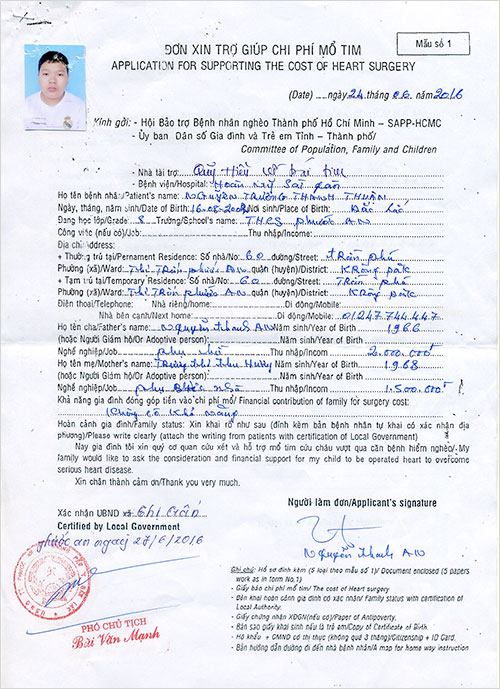 Mẫu số 1
ĐƠN XIN TRỢ GIÚP CHI PHÍ MỔ TIM
APPLICATION FOR SUPPORTING THE COST OF HEART SURGERY
(Date) .....ngày 24 tháng 06 năm 2016
Kính gởi: - Hội Bảo trợ Bệnh nhân nghèo Thành phố Hồ Chí Minh – SAPP-HCMC
- Ủy ban Dân số Gia đình và Trẻ em Tỉnh – Thành phố/
Committee of Population, Family and Children
- Nhà tài trợ:
- Bệnh viện/Hospital: Hoàn Mỹ Sài Gòn
Họ tên bệnh nhân/Patient's name: NGUYỄN TRƯƠNG THANH THUẬN
Ngày, tháng, năm sinh/Date of Birth: 16-08- Nơi sinh/Place of Birth: Đắc Lắc
Đang học lớp/Grade 8 Trường/School's name: THCS phước AN
Công việc (nếu có)/Job Thu nhập/Income:
Địa chỉ/address:
+ Thường trú tại/Pernament Residence: Số nhà/No: 60 đường/Street: trần phú
Phường (xã)/Ward: Thị Trấn phước AN quận (huyện)/District: KRông pắk
+ Tạm trú tại/Temporary Residence: Số nhà/No: 60 đường/Street: Trần phú
Phường (xã)/Ward: Thị Trấn phước AN quận (huyện)/District: KRông pắk
Điện thoại/Telephone: Nhà riêng/home: Di động/Mobile:
Nhà bên cạnh/Next home: Di động/Mobile: 01247744447
Họ tên cha/Father's name: Nguyễn thanh AN Năm sinh/Year of Birth 1966
(hoặc Người Giám hộ/Or Adoptive person): Năm sinh/Year of Birth
Nghề nghiệp/Job phụ hồ Thu nhập/Incom 2.000.000đ
Họ tên mẹ/Mother's name: Trương thị thu Năm sinh/Year of Birth 1968
(hoặc Người Giám hộ/Or Adoptive person): Năm sinh/Year of Birth
Nghề nghiệp/Job phụ Thu nhập/Incom 1.500.000đ
Khả năng gia đình đóng góp tiền vào chi phí mổ/ Financial contribution of family for surgery cost:
không có khả năng
Hoàn cảnh gia đình/Family status: Xin khai rõ như sau (đính kèm bản bệnh nhân tự khai có xác nhận địa
phương)/Please write clearly (attach the writing from patients with certification of Local Government)
Nay gia đình tôi xin quý cơ quan cứu xét và hỗ trợ mổ tim cứu cháu vượt qua cơn bệnh hiểm nghèo/ My
family would like to ask the consideration and financial support for my child to be operated heart to overcome
serious heart disease.
Xin chân thành cảm ơn/Thank you very much.
Người làm đơn/Applicant's signature
Xác nhận UBND xã Thị trấn
Certified by Local Government
phước an ngày 27/6/2016
Nguyễn thanh AN
PHÓ CHỦ TỊCH
Bùi Văn Mạnh
Ghi chú: Hồ sơ đính kèm (5 loại theo mẫu số 1)/ Document enclosed (5 papers
work as in form No.1)
- Giấy báo chi phí mổ tim/ The cost of Heart surgery
- Đơn khai hoàn cảnh gia đình có xác nhận/ Family status with certification of
Local Authority.
- Giấy chứng nhận XĐGN(nếu có)/Paper of Antipoverty.
- Bản sao giấy khai sinh nếu là trẻ em/Copy of Certificate of Birth.
- Hộ khẩu + CMND có thị thực (không quá 3 tháng)/Citizenship + ID Card.
- Bản hướng dẫn đường đi đến nhà bệnh nhân/A map for home way instruction